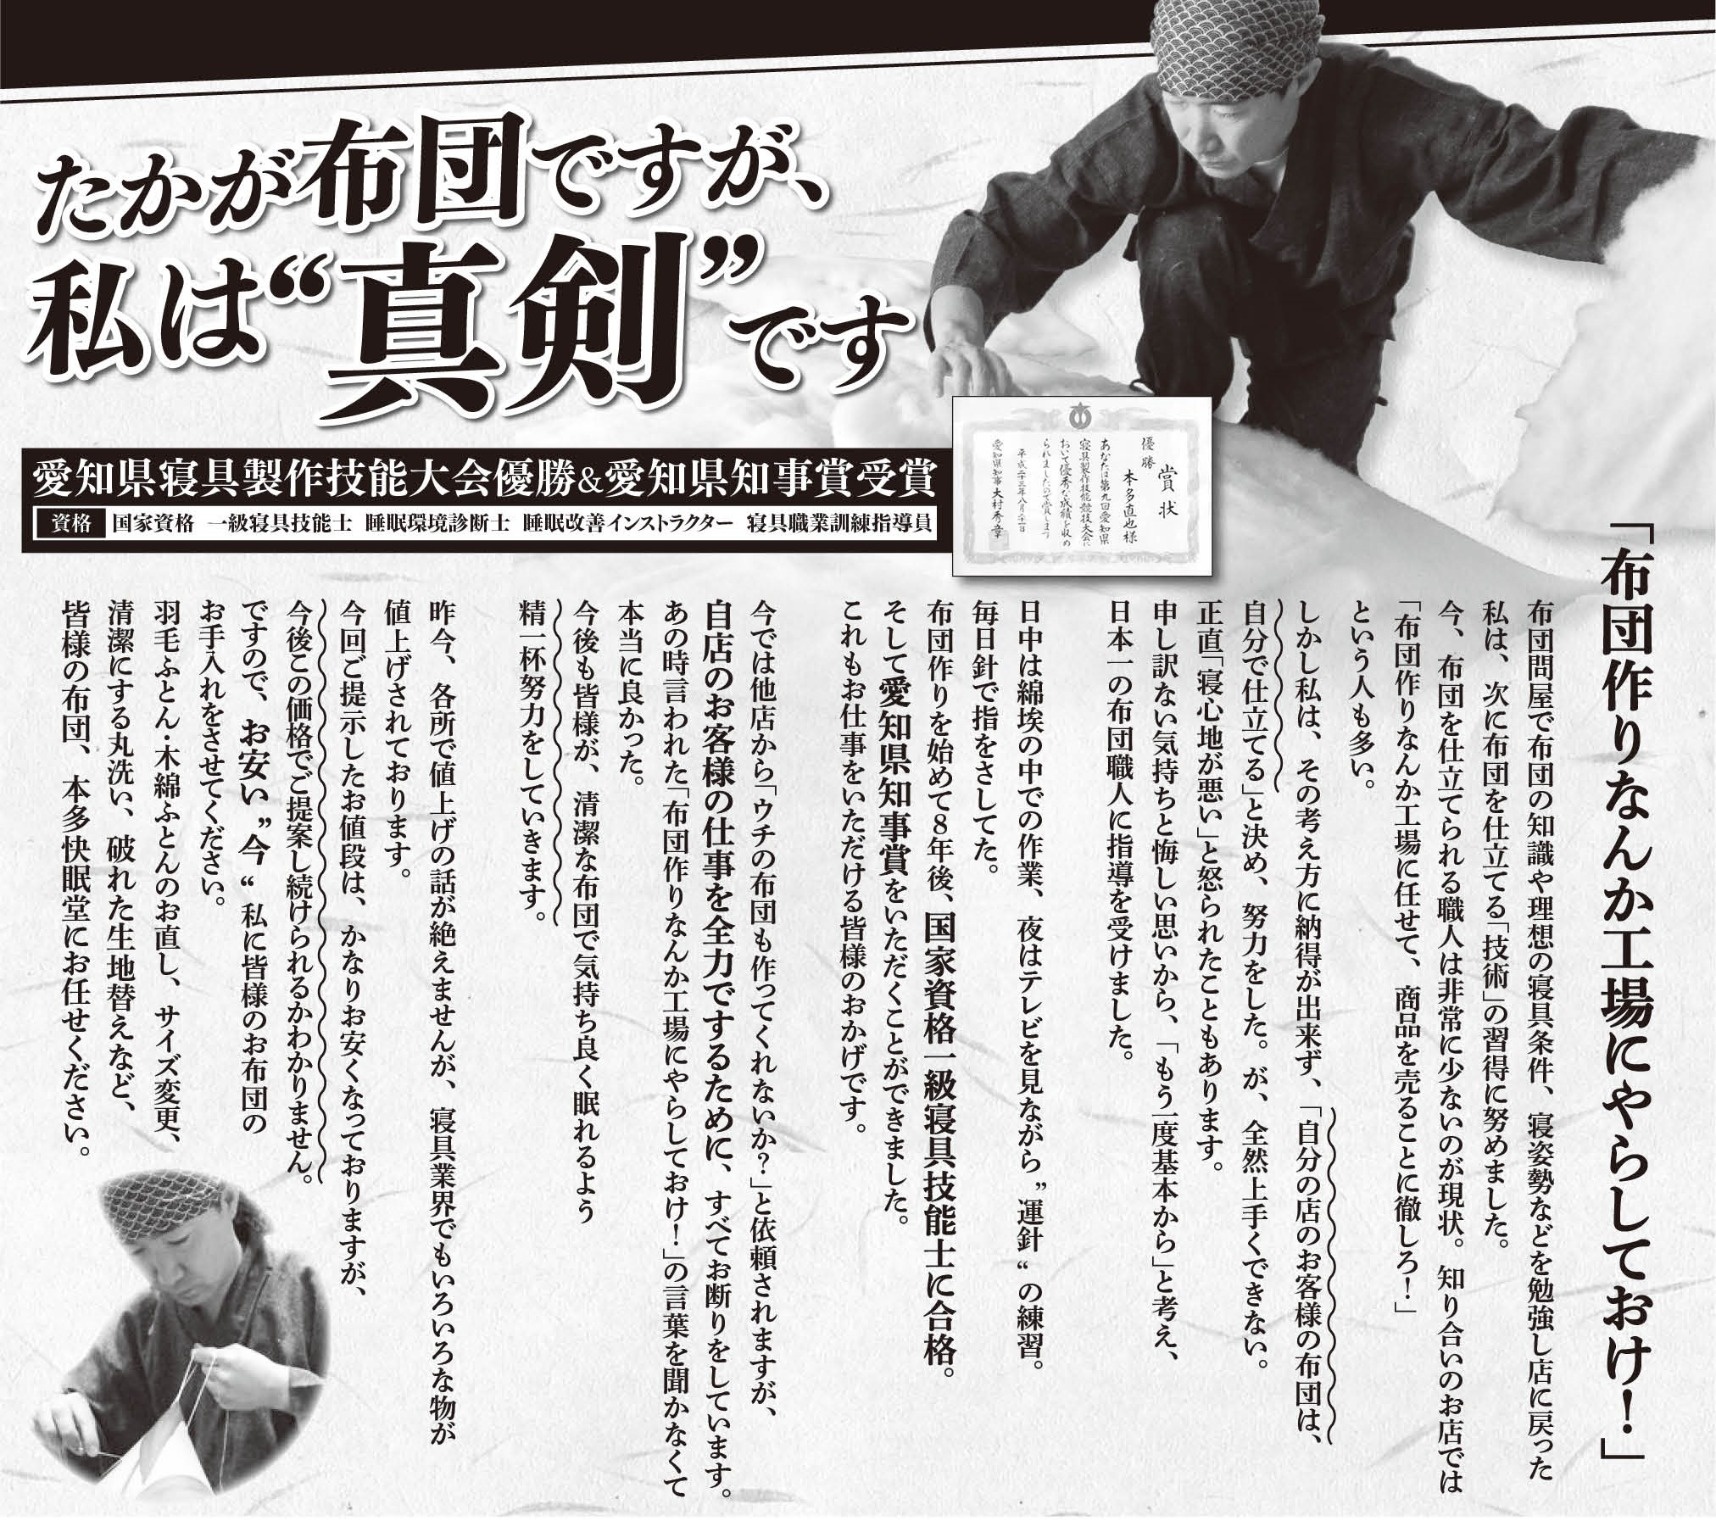 たかが布団ですが、
私は“真剣”です
愛知県寝具製作技能大会優勝&愛知県知事賞受賞
資格 国家資格 一級寝具技能士 睡眠環境診断士 睡眠改善インストラクター 寝具職業訓練指導員
賞状
優勝 本多直也様
あなたは第九回愛知県
寝具製作技能競技大会に
おいて優秀な成績を収め
られましたので賞します
平成二十三年八月二十一日
愛知県知事 大村秀章
「布団作りなんか工場にやらしておけ！」
布団問屋で布団の知識や理想の寝具条件、寝姿勢などを勉強し店に戻った
私は、次に布団を仕立てる「技術」の習得に努めました。
今、布団を仕立てられる職人は非常に少ないのが現状。知り合いのお店では
「布団作りなんか工場に任せて、商品を売ることに徹しろ！」
という人も多い。
しかし私は、その考え方に納得が出来ず、「自分の店のお客様の布団は、
自分で仕立てる」と決め、努力をした。が、全然上手くできない。
正直「寝心地が悪い」と怒られたこともあります。
申し訳ない気持ちと悔しい思いから、「もう一度基本から」と考え、
日本一の布団職人に指導を受けました。
日中は綿埃の中での作業、夜はテレビを見ながら”運針“の練習。
毎日針で指をさしてた。
布団作りを始めて８年後、国家資格一級寝具技能士に合格。
そして愛知県知事賞をいただくことができました。
これもお仕事をいただける皆様のおかげです。
今では他店から「ウチの布団も作ってくれないか？」と依頼されますが、
自店のお客様の仕事を全力でするために、すべてお断りをしています。
あの時言われた「布団作りなんか工場にやらしておけ！」の言葉を聞かなくて
本当に良かった。
今後も皆様が、清潔な布団で気持ち良く眠れるよう
精一杯努力をしていきます。
昨今、各所で値上げの話が絶えませんが、寝具業界でもいろいろな物が
値上げされております。
今回ご提示したお値段は、かなりお安くなっておりますが、
今後この価格でご提案し続けられるかわかりません。
ですので、お安い”今“私に皆様のお布団の
お手入れをさせてください。
羽毛ふとん・木綿ふとんのお直し、サイズ変更、
清潔にする丸洗い、破れた生地替えなど、
皆様の布団、本多快眠堂にお任せください。